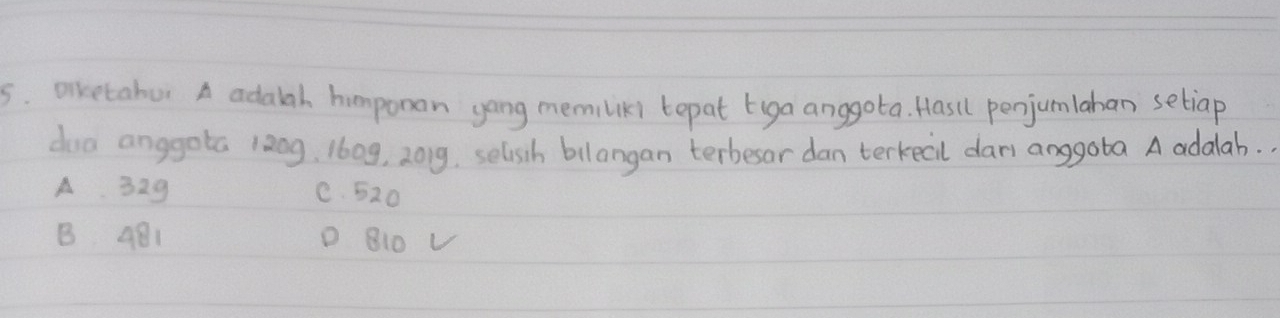 5. Diketahui A adalah himpunan yang memiliki tepat tiga anggota. Hasil penjumlahan setiap
dua anggota 1209, 1609, 2019. selisih bilangan terbesar dan terkecil dari anggota A adalah..
A. 329 C. 520
B 481 D 810 ✓